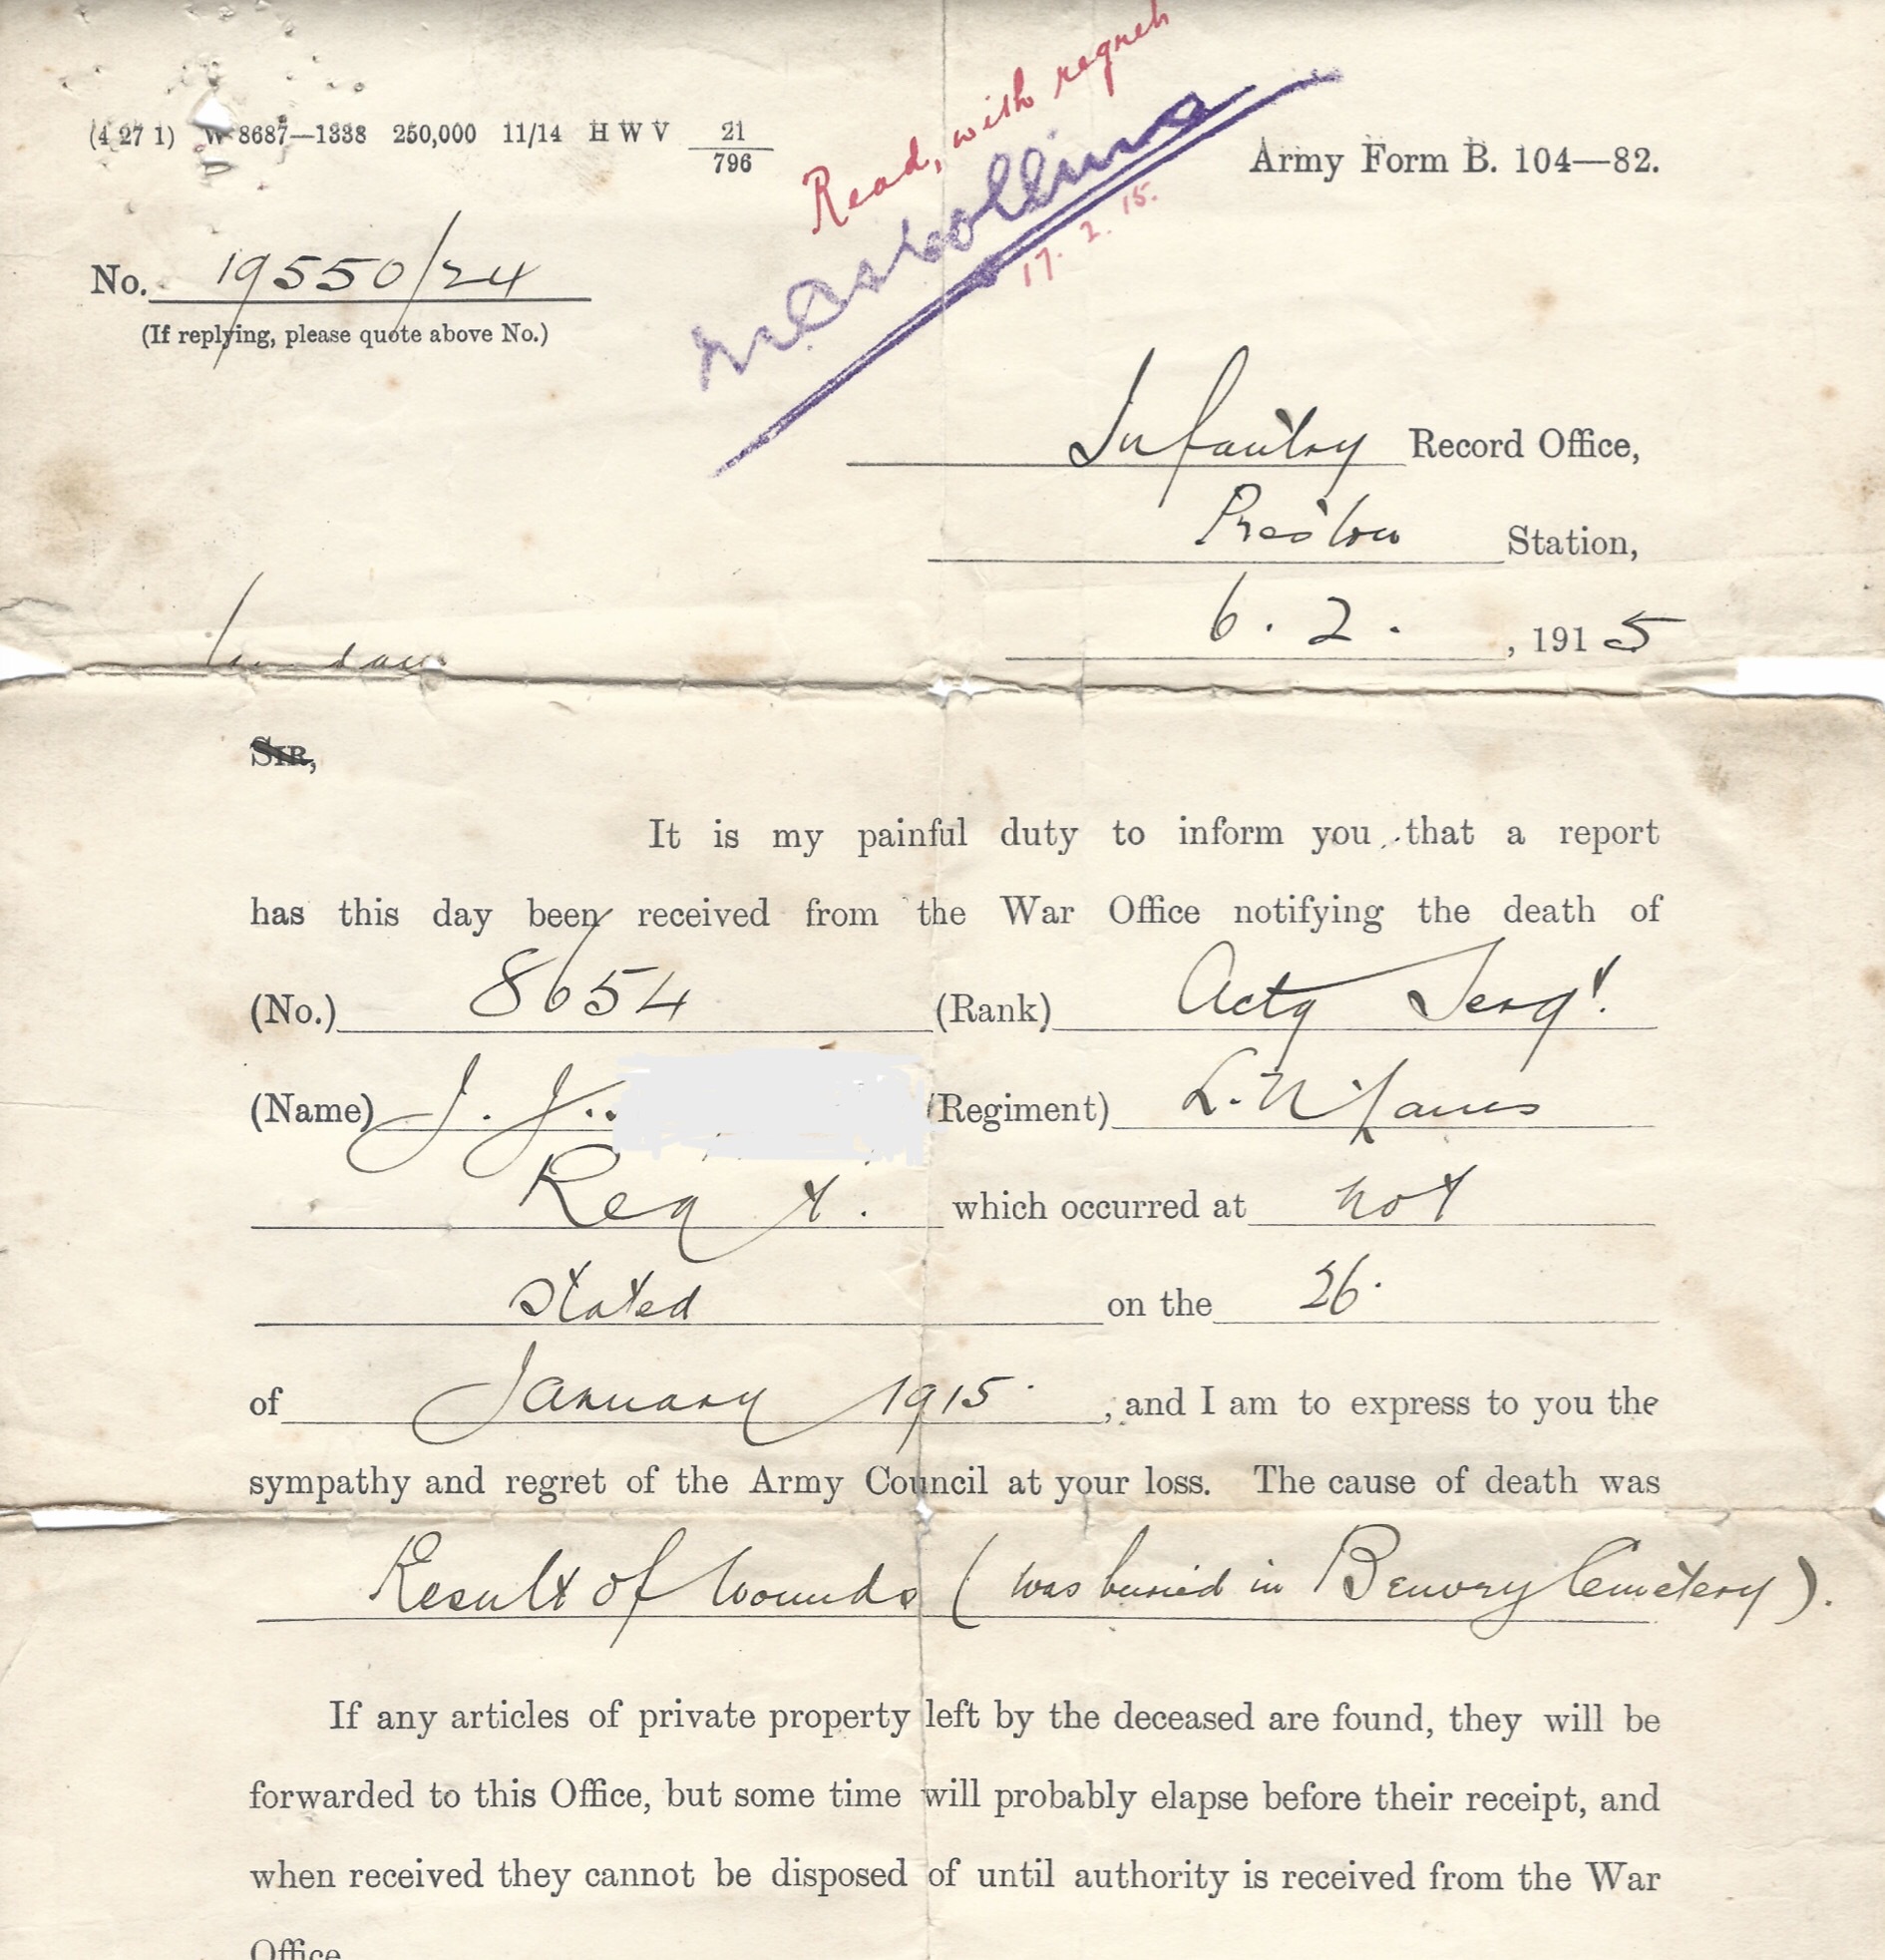 (4 27 1) W 8687—1338 250,000 11/14 H W V 21/796
Read, with regret
17. 2. 15.
Army Form B. 104—82.
No. 19550/24
(If replying, please quote above No.)
Infantry Record Office,
Preston Station,
6. 2. , 1915
SIR,
It is my painful duty to inform you that a report
has this day been received from the War Office notifying the death of
(No.) 8654 (Rank) Actg Sergt.
(Name) J. J. (Regiment) L. N. Lancs
Regt. which occurred at not
stated on the 26.
of January 1915. , and I am to express to you the
sympathy and regret of the Army Council at your loss. The cause of death was
Result of Wounds (was buried in Beuvry Cemetery).
If any articles of private property left by the deceased are found, they will be
forwarded to this Office, but some time will probably elapse before their receipt, and
when received they cannot be disposed of until authority is received from the War
Office